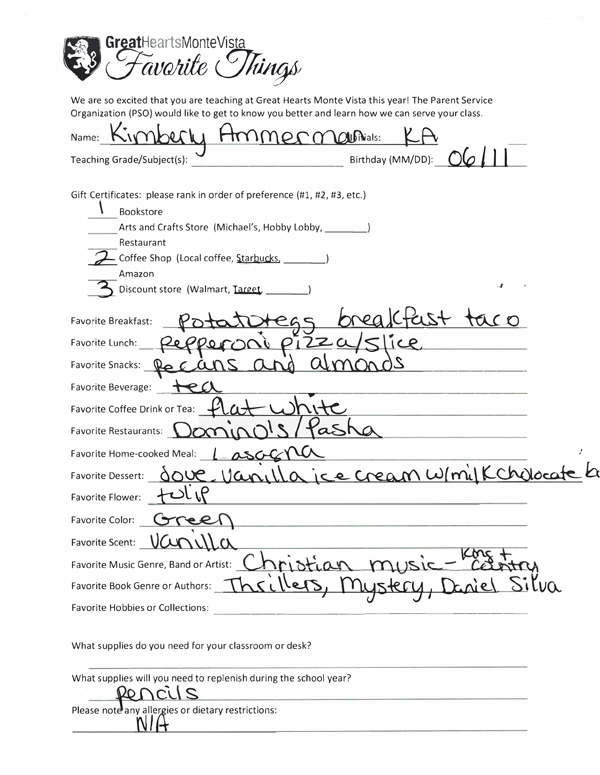 GreatHeartsMonteVista
Favorite Things
We are so excited that you are teaching at Great Hearts Monte Vista this year! The Parent Service
Organization (PSO) would like to get to know you better and learn how we can serve your class.
Name: Kimberly Ammerman Initials: KA
Teaching Grade/Subject(s): Birthday (MM/DD): 06/11
Gift Certificates: please rank in order of preference (#1, #2, #3, etc.)
1 Bookstore
Arts and Crafts Store (Michael's, Hobby Lobby, ________)
Restaurant
2 Coffee Shop (Local coffee, Starbucks, ________)
Amazon
3 Discount store (Walmart, Target, ________)
Favorite Breakfast: potato+egg breakfast taco
Favorite Lunch: pepperoni pizza/slice
Favorite Snacks: pecans and almonds
Favorite Beverage: tea
Favorite Coffee Drink or Tea: flat white
Favorite Restaurants: Domino's/Pasha
Favorite Home-cooked Meal: Lasagna
Favorite Dessert: dove vanilla ice cream w/milk cholocate
Favorite Flower: tulip
Favorite Color: Green
Favorite Scent: Vanilla
Favorite Music Genre, Band or Artist: Christian music - King + Country
Favorite Book Genre or Authors: Thrillers, Mystery, Daniel Silva
Favorite Hobbies or Collections:
What supplies do you need for your classroom or desk?
What supplies will you need to replenish during the school year?
pencils
Please note any allergies or dietary restrictions:
N/A